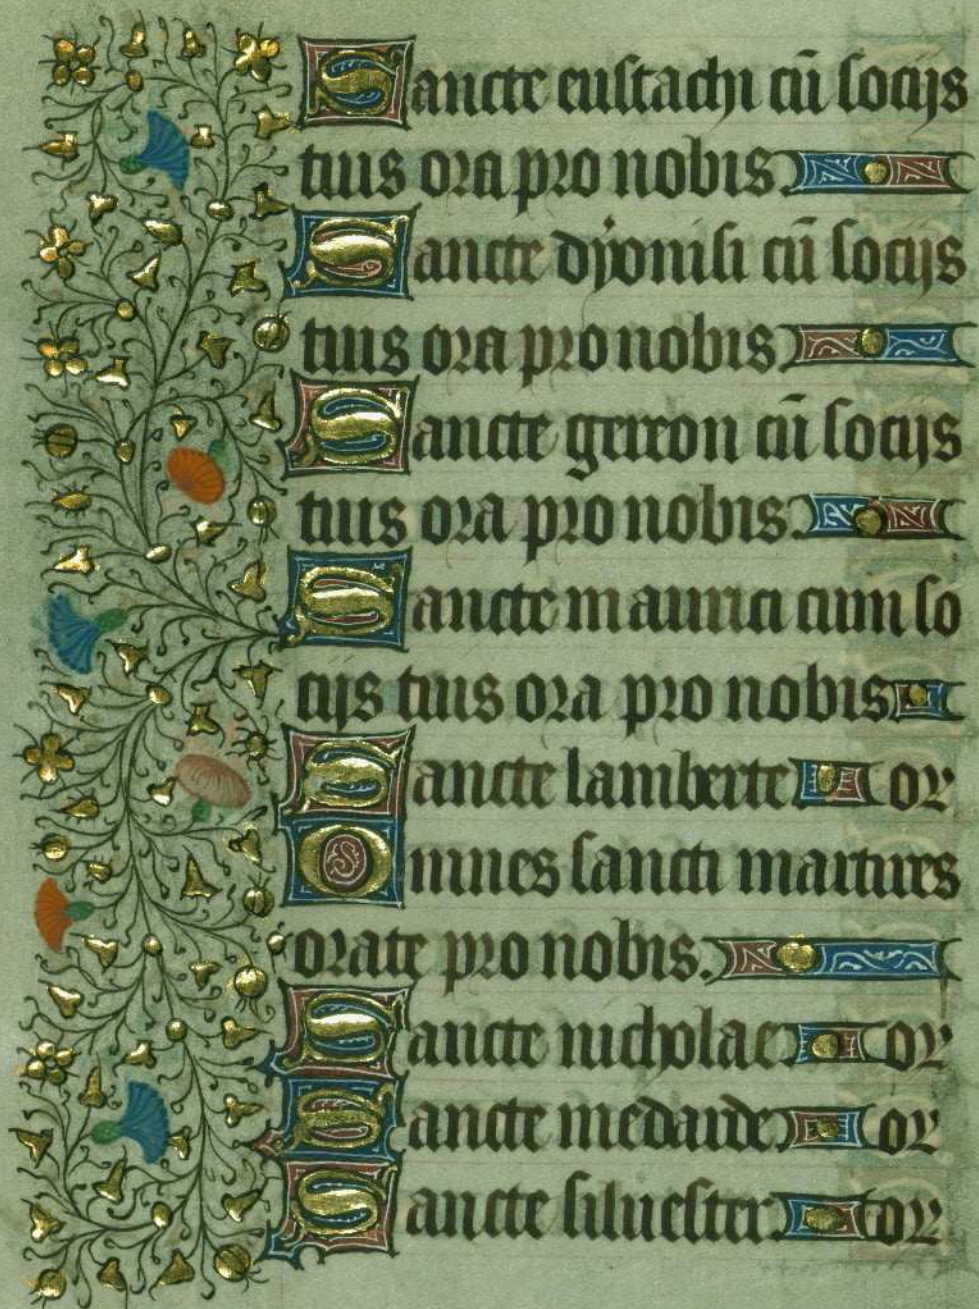 Sancte eustachi cū socijs
tuis ora pro nobis.
Sancte dyonisi cū socijs
tuis ora pro nobis
Sancte gereon cū socijs
tuis ora pro nobis.
Sancte maurici cum so
cijs tuis ora pro nobis
Sancte lamberte or
Omnes sancti martires
orate pro nobis.
Sancte nicholae or
Sancte medarde or
Sancte siluester or